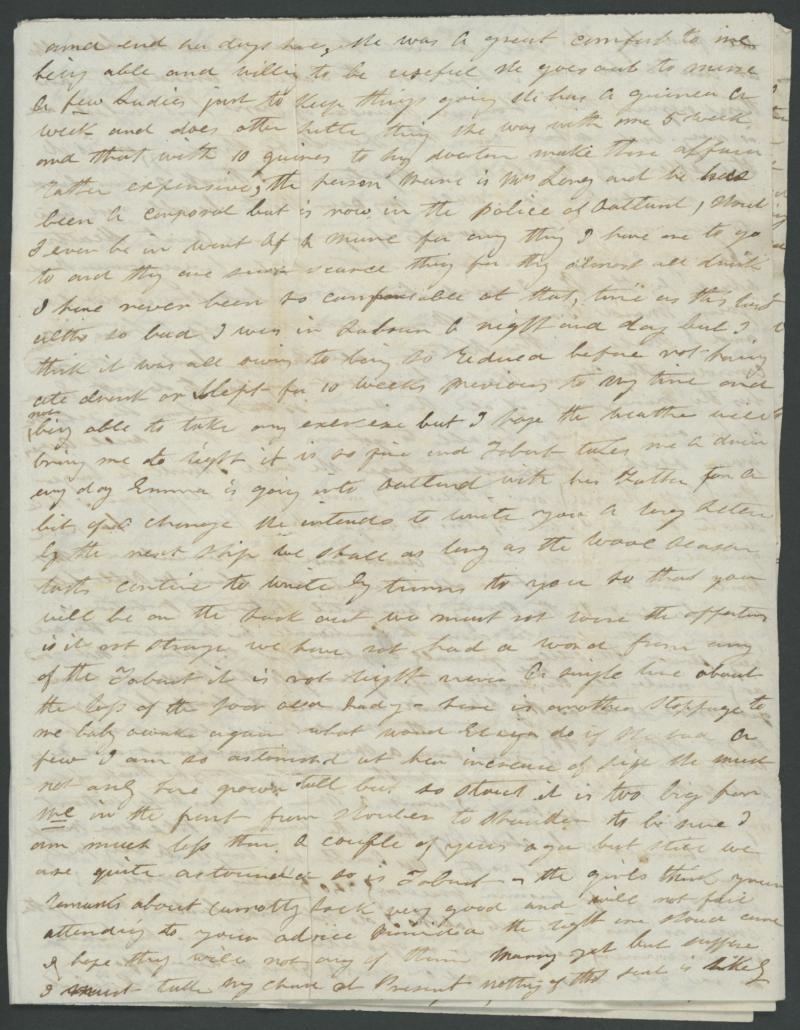 and end her days here, she was a great comfort to me
being able and willing to be useful she goes out to nurse
a few Ladies just to keep things going she has a guinea a
week and does other little things she was with me 5 weeks
and that with 10 guineas to my doctor make these affairs
rather expensive, the person Nurse is Mrs Long and he has
been a corporal but is now in the police of Maitland, should
I ever be in want of a Nurse for any thing I have one to go
to and they are such scarce things for they almost all drink
I have never been so comfortable at that time as this last
altho so bad I was in Labour a night and day but I
think it was all owing to being so reduced before not having
ate drank or slept for 10 weeks previous to my time and
not being able to take any exercise but I hope the weather will
bring me to right it is so fine and Tobert takes me a drive
every day Emma is going into Maitland with her Father for a
bit of a change she intends to write you a long Letter
by the next Ship we shall as long as the Wool Season
lasts continue to write by turns to you so that you
will be on the look out we must not lose the opportunity
is it not strange we have not had a word from any
of the Toberts it is not right never a single line about
the loss of the poor dear Lady - here is another stoppage to
me baby awake again what would Eliza do if she had a
few I am so astonished at her increase of size she must
not only have grown tall but so stout it is too big for
me in the front from shoulder to shoulder to be sure I
am much less than a couple of years ago but still we
are quite astounded so is Tobert - the girls think your
remarks about currotty Jack very good and will not fail
attending to your advice provided the right one should come
I hope they will not any of them marry yet but suppose
I must take my chance at Present nothing of the sort is likely